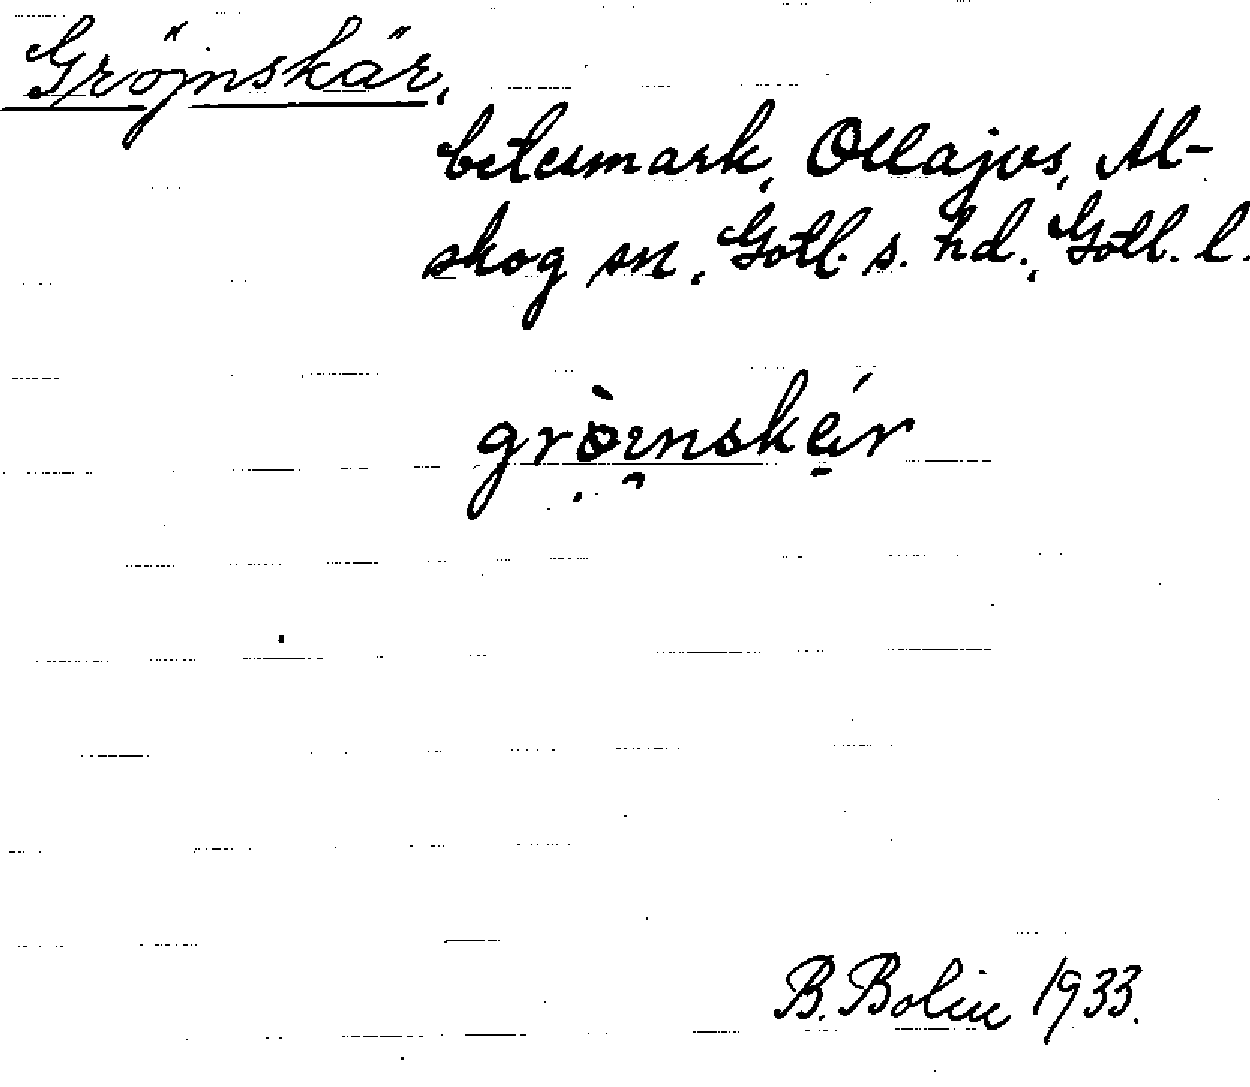 Gröjnskär,
betesmark, Ollajvs, Al-
skog sn, Gotl. s. hd., Gotl. l.
grò̤i̯nské̠r
B. Bolin 1933.